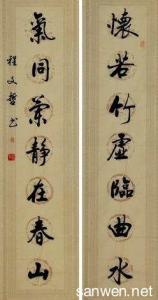 懷若竹虛臨曲水
氣同蘭靜在春山
程文哲书
三文网
sanwen.net